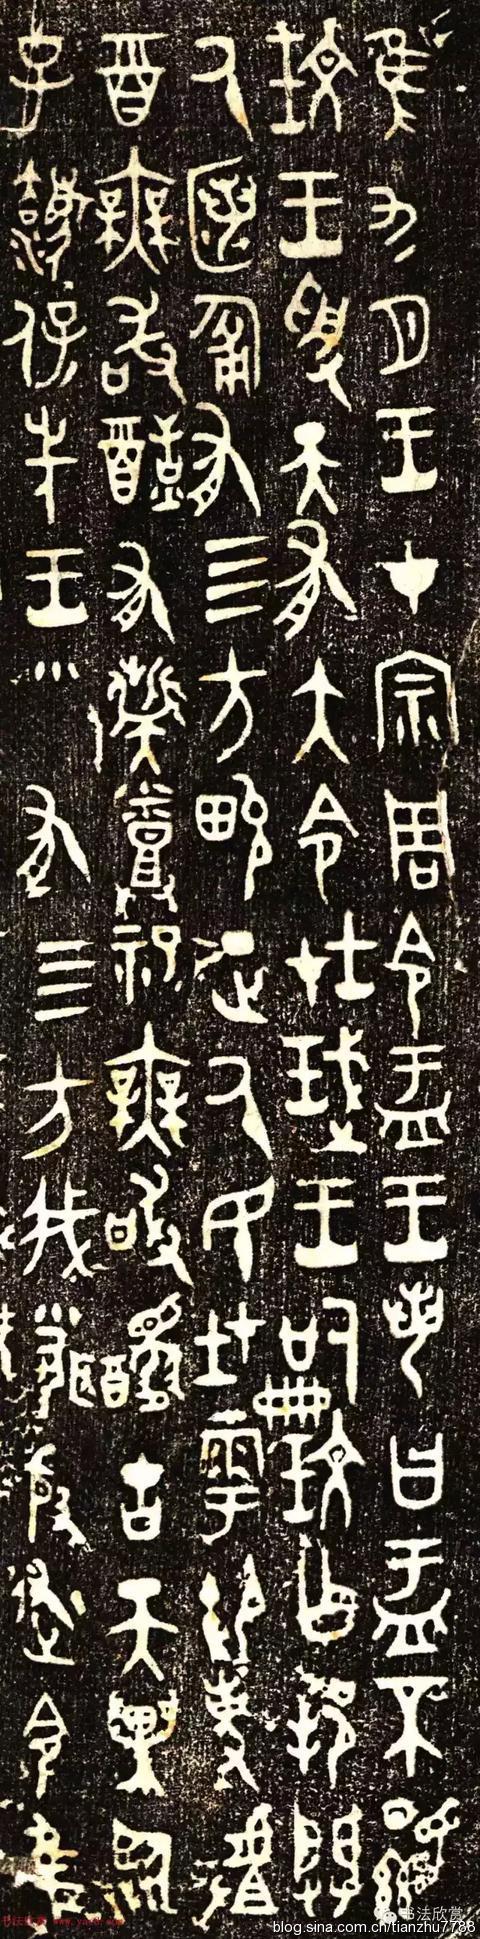 隹九月王才宗周令盂王若曰盂不顯
玟王受天有大令在珷王嗣玟乍邦闢
氒匿匍有亖方畯正氒民在雩御事䖒
酉無敢酖有祡烝祀無敢醻古天異臨
子灋保先王有亖方我聞殷述令隹
书法欣赏
blog.sina.com.cn/tianzhu7788